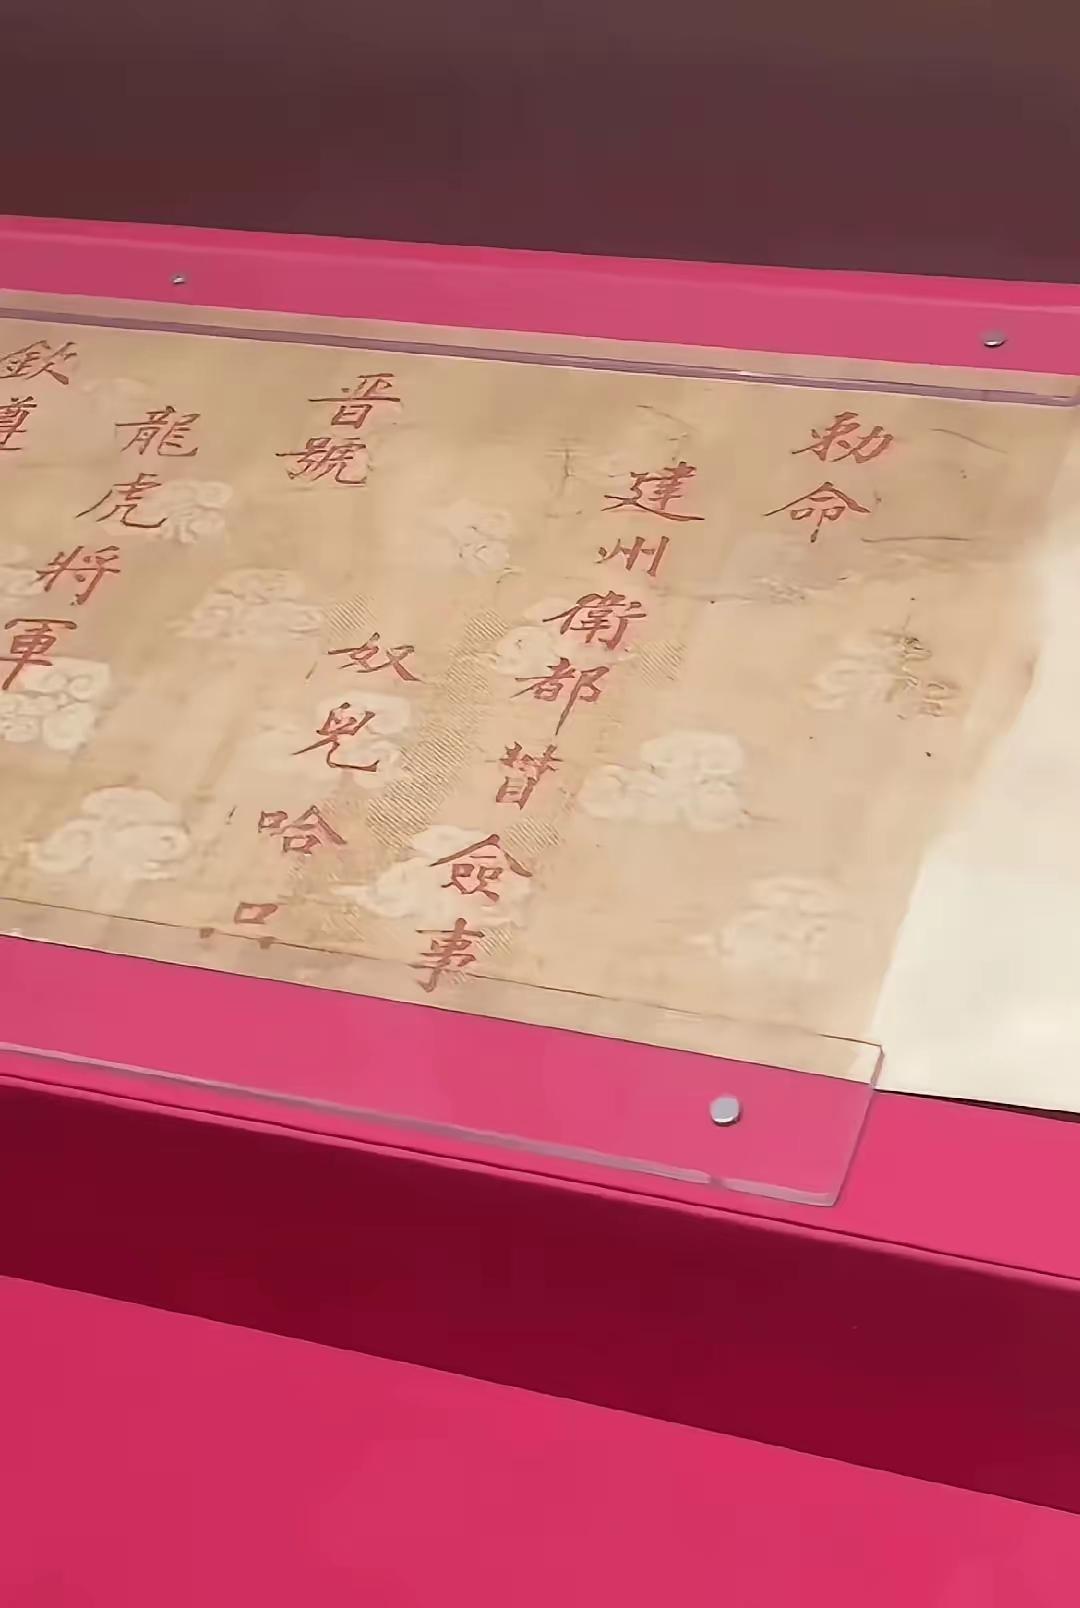 勅命
建州衛都督僉事
奴兒哈只
晋號
龍虎將軍
欽遵